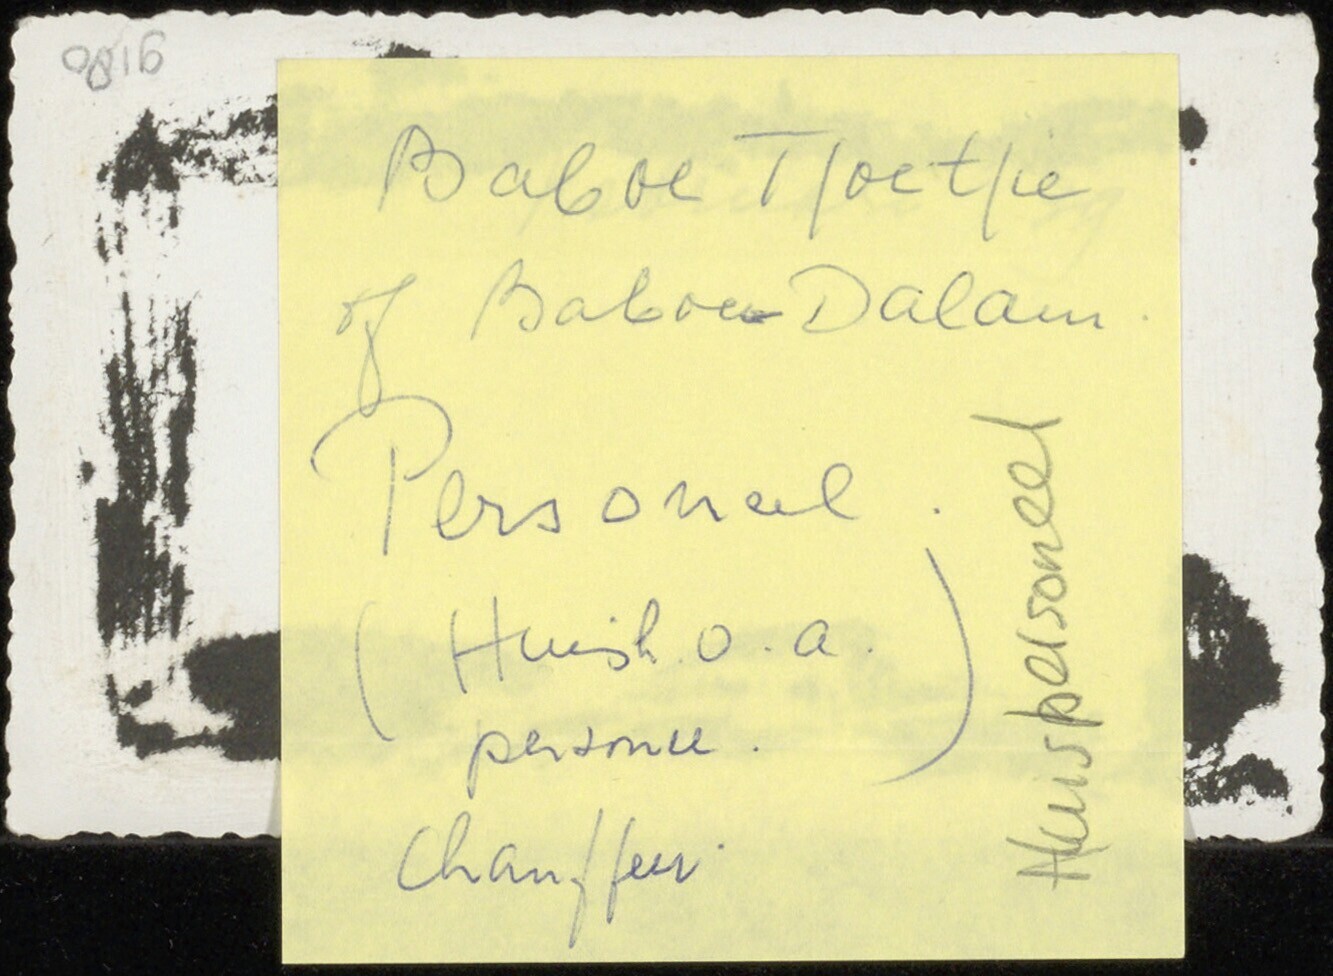 Baboe Tjoetjie
of Baboe Dalam.
Personeel.
(Huish. o.a.
personeel.)
Chauffeur.
Huispersoneel